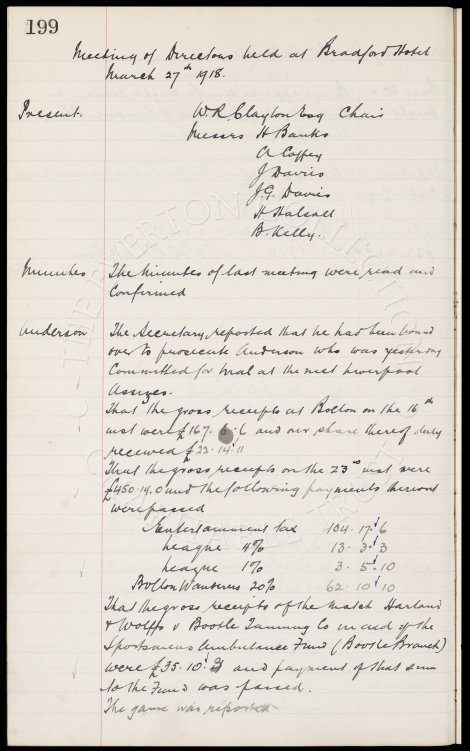 199
Meeting of Directors held at Bradford Hotel
March 27th 1918.
Present. W.R. Clayton Esq Chair
Messrs H Banks
A Coffey
J Davies
J.G. Davies
H Halsall
B. Kelly.
Minutes The Minutes of last meeting were read and
Confirmed
Anderson The Secretary reported that he had been bound
over to prosecute Anderson who was yesterday
Committed for trial at the next Liverpool
Assizes.
That the gross receipts at Bolton on the 16th
inst were £167. 6. 6 and our share thereof duly
received £22. 14. 11
That the gross receipts on the 23rd inst were
£450. 14. 0 and the following payments thereout
were passed
Entertainment Tax 134. 17. 6
League 4% 13. 3. 3
League 1% 3. 5. 10
Bolton Wanderers 20% 62. 10. 10
That the gross receipts of the match Harland
& Wolffs v Bootle Tanning Co in aid of the
Sportsmens Ambulance Fund (Bootle Branch)
were £35. 10. and payment of that sum
to the Fund was passed.
The game was reported
THE EVERTON COLLECTION
CHARITABLE TRUST